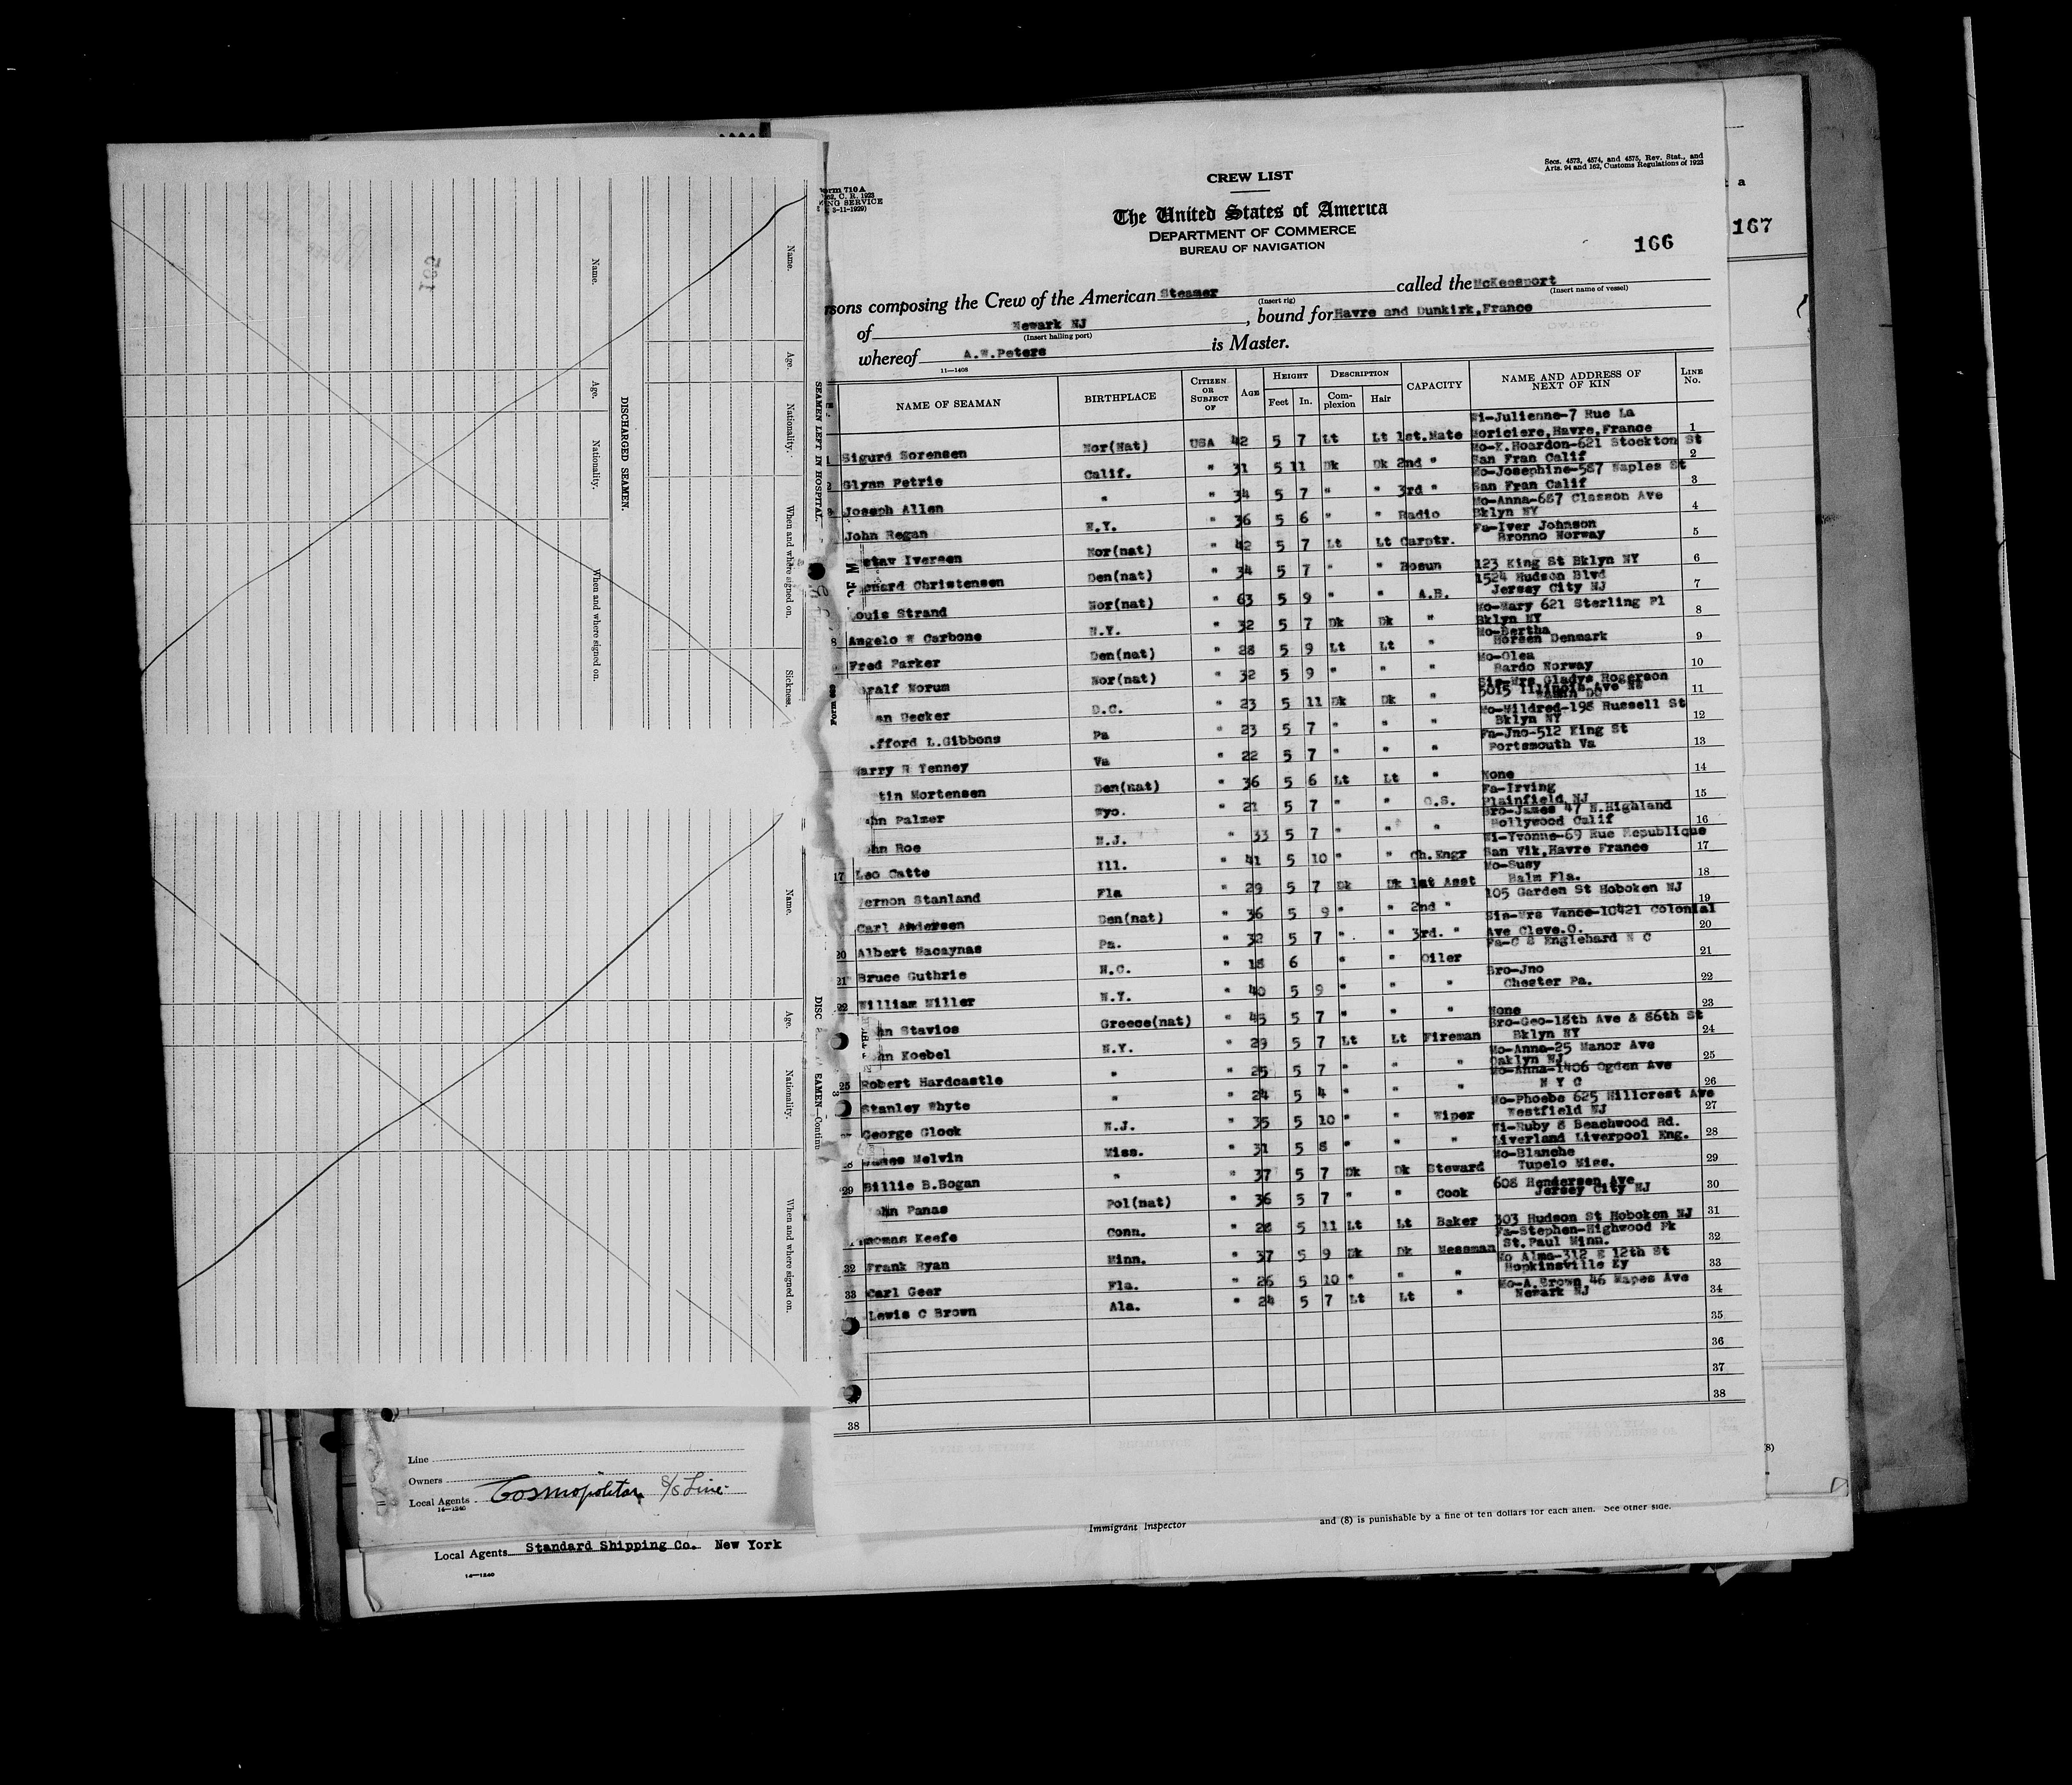 Form 710 A
C. R. 1923
SERVICE
3-11-1929)
Secs. 4573, 4574, and 4575, Rev. Stat., and
Arts. 94 and 162, Customs Regulations of 1923
CREW LIST
The United States of America
DEPARTMENT OF COMMERCE
BUREAU OF NAVIGATION
166
167
a
composing the Crew of the American Steamer called the McKeesport
(Insert rig) (Insert name of vessel)
of Newark NJ, bound for Havre and Dunkirk, France
(Insert hailing port)
whereof A.W.Peters is Master.
11—1408
NAME OF SEAMAN BIRTHPLACE CITIZEN OR SUBJECT OF AGE HEIGHT Feet In. DESCRIPTION Complexion Hair CAPACITY NAME AND ADDRESS OF NEXT OF KIN LINE No.
Sigurd Sorensen Nor(Nat) USA 42 5 7 Lt Lt 1st.Mate Wi-Julienne-7 Rue La Moriciere,Havre,France 1
Glynn Petrie Calif. " 31 5 11 Dk Dk 2nd " Mo-K.Hoardon-621 Stockton St San Fran Calif 2
Joseph Allen " " 34 5 7 " " 3rd " Mo-Josephine-587 Naples St San Fran Calif 3
John Regan N.Y. " 36 5 6 " " Radio Mo-Anna-687 Classon Ave Bklyn NY 4
Iversen Nor(nat) " 42 5 7 Lt Lt Carptr. Fa-Iver Johnson Bronno Norway 5
Christensen Den(nat) " 34 5 7 " " Bosun 123 King St Bklyn NY 6
Louis Strand Nor(nat) " 63 5 9 " " A.B. 1524 Hudson Blvd Jersey City NJ 7
8 Angelo W Carbone N.Y. " 32 5 7 Dk Dk " Mo-Mary 621 Sterling Pl Bklyn NY 8
Fred Parker Den(nat) " 28 5 9 Lt Lt " Mo-Bertha Horsen Denmark 9
Norum Nor(nat) " 32 5 9 " " " Mo-Olea Bardo Norway 10
Decker D.C. " 23 5 11 Dk Dk " Sis-Mrs Gladys Rogerson 5015 Illinois Ave NW Washn DC 11
L.Gibbons Pa " 23 5 7 " " " Mo-Mildred-198 Russell St Bklyn NY 12
Harry Tenney Va " 22 5 7 " " " Fa-Jno-512 King St Portsmouth Va 13
Mortensen Den(nat) " 36 5 6 Lt Lt " None 14
Palmer Wyo. " 21 5 7 " " O.S. Fa-Irving Plainfield NJ 15
Roe N.J. " 33 5 7 " " " Bro-James 47 N.Highland Hollywood Calif 16
17 Leo Catte Ill. " 41 5 10 " " Ch.Engr Wi-Yvonne-69 Rue Republique San Vik,Havre France 17
Vernon Stanland Fla " 29 5 7 Dk Dk 1st Asst Mo-Susy Balm Fla. 18
Carl Andersen Den(nat) " 36 5 9 " " 2nd " 105 Garden St Hoboken NJ 19
20 Albert Macaynas Pa. " 32 5 7 " " 3rd. " Sis-Mrs Vance-10421 Colonial Ave Cleve.O. 20
21 Bruce Guthrie N.C. " 18 6 " " Oiler Fa-C S Englehard N C 21
22 William Miller N.Y. " 40 5 9 " " " Bro-Jno Chester Pa. 22
Stavios Greece(nat) " 45 5 7 " " " None 23
Koebel N.Y. " 29 5 7 Lt Lt Fireman Bro-Geo-18th Ave & 86th St Bklyn NY 24
25 Robert Hardcastle " " 25 5 7 " " " Mo-Anna-25 Manor Ave Oaklyn NJ 25
Stanley Whyte " " 24 5 4 " " " Mo-Anna-1406 Ogden Ave N Y C 26
George Glock N.J. " 35 5 10 " " Wiper Mo-Phoebe 625 Hillcrest Ave Westfield NJ 27
James Melvin Miss. " 31 5 8 " " " Wi-Ruby 8 Beachwood Rd. Liverland Liverpool Eng. 28
29 Billie B.Bogan " " 37 5 7 Dk Dk Steward Mo-Blanche Tupelo Miss. 29
John Panas Pol(nat) " 36 5 7 " " Cook 608 Henderson Ave Jersey City NJ 30
Thomas Keefe Conn. " 28 5 11 Lt Lt Baker 303 Hudson St Hoboken NJ 31
32 Frank Ryan Minn. " 37 5 9 Dk Dk Messman Fa-Stephen-Highwood Pk St.Paul Minn. 32
33 Carl Geer Fla. " 26 5 10 " " " Mo Alma-312 E 12th St Hopkinsville Ky 33
Lewis C Brown Ala. " 24 5 7 Lt Lt " Mo-A.Brown 46 Mapes Ave Newark NJ 34
35
36
37
38 38
SEAMEN LEFT IN HOSPITAL.
Name. Age. Nationality. When and where signed on. Sickness.
DISCHARGED SEAMEN.
Name. Age. Nationality. When and where signed on.
DISC EAMEN—Continu
Name. Age. Nationality. When and where signed on.
Line
Owners
Local Agents Cosmopolitan S/S Line
14—1240
Local Agents Standard Shipping Co. New York
14—1240
Immigrant Inspector
and (8) is punishable by a fine of ten dollars for each alien. See other side.